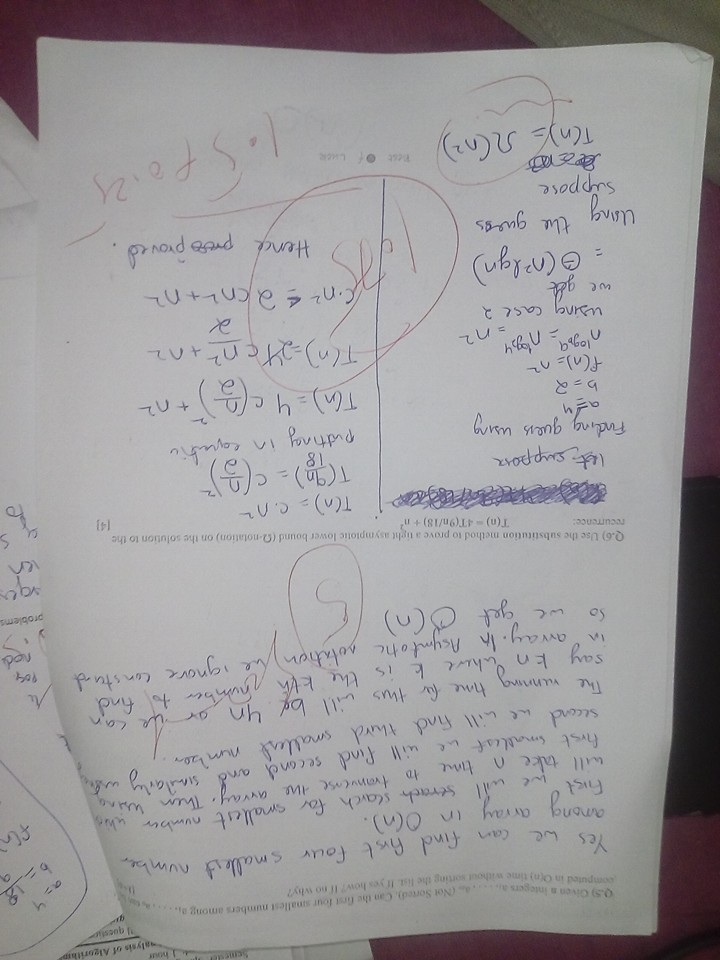 Semester
analysis of Algorithm
1 hour
question
Q.5) Given a integers a₁......aₙ (Not Sorted). Can the first four smallest numbers among a₁......aₙ
computed in O(n) time without sorting the list. If yes how? If no why?
Yes we can find first four smallest number
among array in O(n).
First we will search for smallest number which
will take n time to tranverse the array. Then using
first smallest we will find second and similarly using
second we will find third smallest number.
The running time for this will be 4n or we can
say kn where k is the kth number to find
in array. In Asymptotic notation, we ignore constant
so we get Θ(n)
5
Q.6) Use the substitution method to prove a tight asymptotic lower bound (Ω-notation) on the solution to the
recurrence: T(n) = 4T(9n/18) + n² [4]
let suppose
Finding guess using
a=4
b=2
f(n)=n²
n^log_b a = n^log_2 4 = n²
using case 2
we get
= Θ(n² lgn)
Using the guess
suppose
T(n) = Ω(n²)
T(n) = c.n²
T(9n/18) = c(n/2)²
putting in equation
T(n) = 4 c(n/2)² + n²
c.n² = 2cn² + n²
Hence proved.
Best Of Luck
a=4
b=18/9
problems